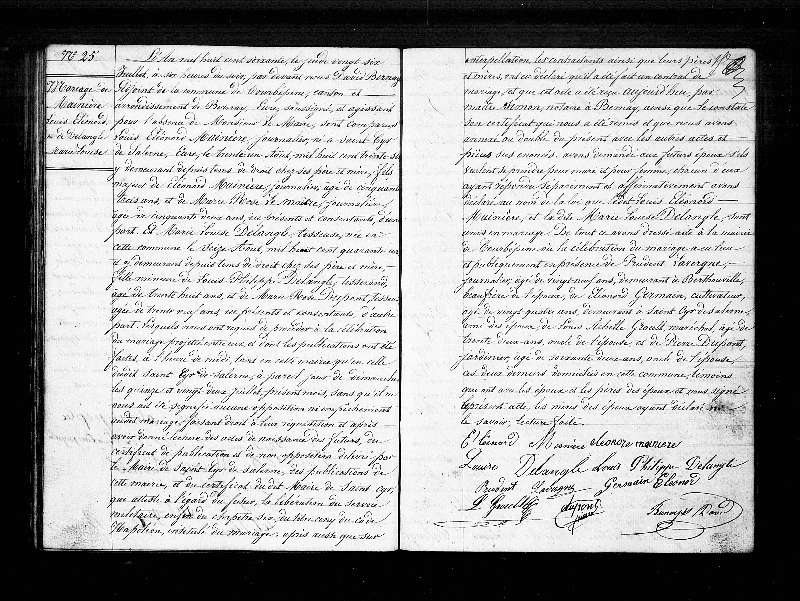 N° 25
Mariage de
Mainière
Louis Eléonord,
et de Delangle
Marie Louise
L'An mil huit cent soixante, le jeudi vingt six
Juillet, à six heures du soir, par devant nous David
Adjoint de la commune de Courbépine, canton et
arrondissement de Bernay, Eure, soussigné, et agissant
pour l'absence de Monsieur le Maire, sont comparus
Louis Eléonord Mainière, journalier, né à Saint Cyr
de Salerne, Eure, le trente un Août, mil huit cent trente six
y demeurant depuis lors de droit chez ses père et mère, fils
majeur de Eléonord Mainière, journalier, âgé de cinquante
trois ans, et de Marie Rose journalière,
âgée de cinquante deux ans, ici présents et consentants, d'une
part. Et Marie Louise Delangle, tisseuse, née en
cette commune le seize Août, mil huit cent quarante un
et y demeurant depuis lors de droit chez ses père et mère,
fille mineure de Louis Philippe Delangle, tisserand,
âgé de trente huit ans, et de Marie Rose Dupont, tisseuse,
âgée de trente neuf ans, ici présents et consentants, d'autre
part. Lesquels nous ont requis de procéder à la célébration
du mariage projeté entre eux, et dont les publications ont été
faites, à l'heure de midi, tant en cette mairie qu'en celle
dudit Saint Cyr de Salerne, à pareil jour de dimanche
les quinze et vingt deux juillet, présent mois, sans qu'il
nous ait été signifié aucune opposition ni empêchement
audit mariage, faisant droit à leur réquisition et après
avoir donné lecture des actes de naissance des futurs, du
certificat de publication et de non opposition délivré par
le Maire de Saint Cyr de Salerne, des publications de
cette mairie, et du certificat dudit Maire de Saint Cyr,
qui atteste à l'égard du futur, la libération du service
militaire, enfin du chapitre six, du titre cinq du Code
Napoléon, intitulé du mariage; après aussi que sur
interpellation, les contractants ainsi que leurs pères
et mères, ont eu déclaré qu'il a été fait un contrat de
mariage, et que cet acte a été reçu aujourd'hui par
maître notaire à Bernay, ainsi que le constate
son certificat qui nous a été remis et que nous avons
annexé au double du présent avec les autres actes et
pièces sus énoncés, avons demandé aux futurs époux s'ils
veulent se prendre pour mari et pour femme, chacun d'eux
ayant répondu séparément et affirmativement avons
déclaré au nom de la loi que Louis Eléonord
Mainière, et la dite Marie Louise Delangle, sont
unis en mariage. De tout ce avons dressé acte à la mairie
de Courbépine où la célébration du mariage a eu lieu
et publiquement en présence de Prudent Lavergne,
journalier, âgé de vingt neuf ans, demeurant à Berthouville,
beau frère de l'époux, de Eléonord Germain, cultivateur,
âgé de vingt quatre ans, demeurant à Saint Cyr de Salerne,
ami des époux, de Louis Groult, maréchal, âgé de
trente deux ans, oncle de l'épouse, et de Pierre Dupont,
jardinier, âgé de soixante deux ans, oncle de l'épouse,
ces deux derniers domiciliés en cette commune, témoins
qui ont avec les époux et les pères des époux et nous signé
le présent acte, les mères des époux ayant déclaré ne
le savoir, lecture faite.
Eléonord Mainière eleonore mainiere
Louise Delangle Louis Philippe Delangle
Prudent Lavergne Germain Eléonord
L Groult dupont
pierre David